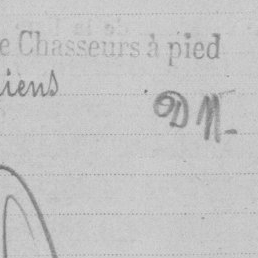 e Chasseurs à pied
iens
DM_